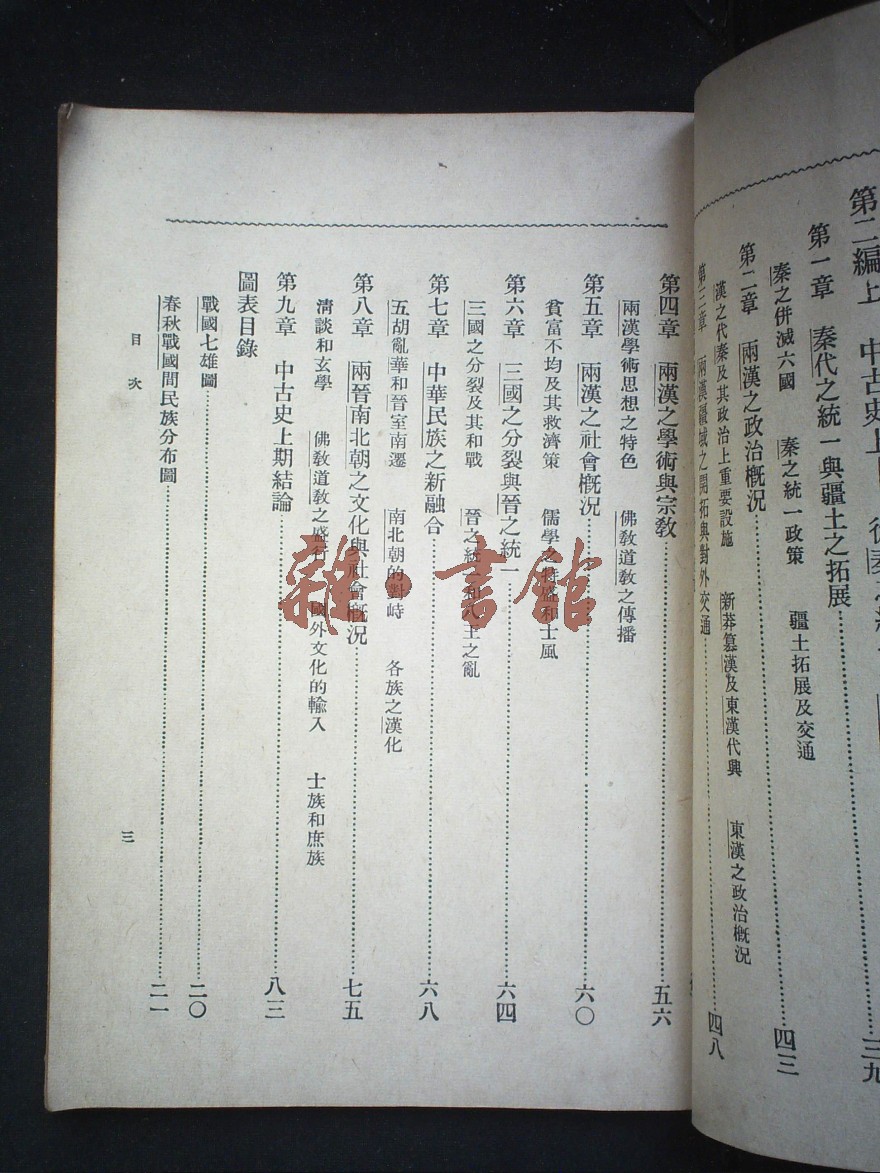 第二編上 中古史上
第一章 秦代之統一與疆土之拓展……三九
秦之併滅六國 秦之統一政策 疆土拓展及交通
第二章 兩漢之政治概況……四三
漢之代秦及其政治上重要設施 新莽篡漢及東漢代興 東漢之政治概況
第三章 兩漢疆域之開拓與對外交通……四八
第四章 兩漢之學術與宗教……五六
兩漢學術思想之特色 佛教道教之傳播
第五章 兩漢之社會概況……六〇
貧富不均及其救濟策 儒學之特盛和士風
第六章 三國之分裂與晉之統一……六四
三國之分裂及其和戰 晉之統一和八王之亂
第七章 中華民族之新融合……六八
五胡亂華和晉室南遷 南北朝的對峙 各族之漢化
第八章 兩晉南北朝之文化與社會概況……七五
清談和玄學 佛教道教之盛行 國外文化的輸入 士族和庶族
第九章 中古史上期結論……八三
圖表目錄
戰國七雄圖……二〇
春秋戰國間民族分布圖……二一
目次
三
雜·書館